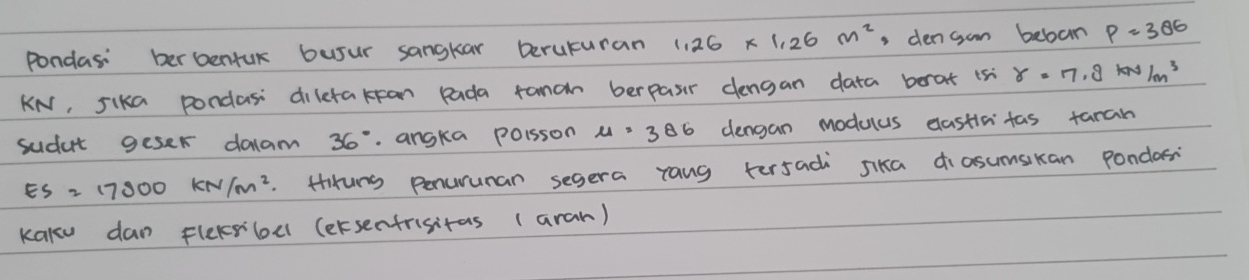 Pondasi berbentuk bujur sangkar berukuran 1,26 x 1,26 m², dengan beban P = 386
KN, Jika pondasi diletakkan pada tanah berpasir dengan data berat isi γ = 7,8 kN/m³
sudut geser dalam 36°. angka poisson μ = 386 dengan modulus elastisitas tanah
ES = 17800 KN/m². Hitung Penurunan segera yang terjadi jika diasumsikan pondasi
kaku dan Fleksibel (eksentrisitas 1 arah)